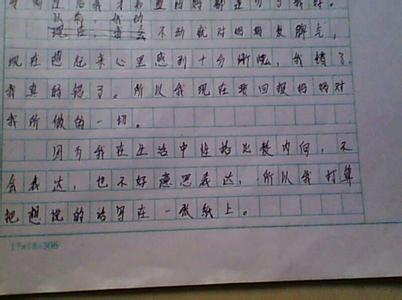 都是为了我好。
以前，我
不动就对妈妈发脾气，
现在想起来心里感到十分惭愧，我错了，
我真的错了。所以我现在要回报妈妈对
我所做的一切。
因为我在生活中性格比较内向，不
会表达，也不好意思表达，所以我打算
把想说的话写在一张纸上。
17×18=306